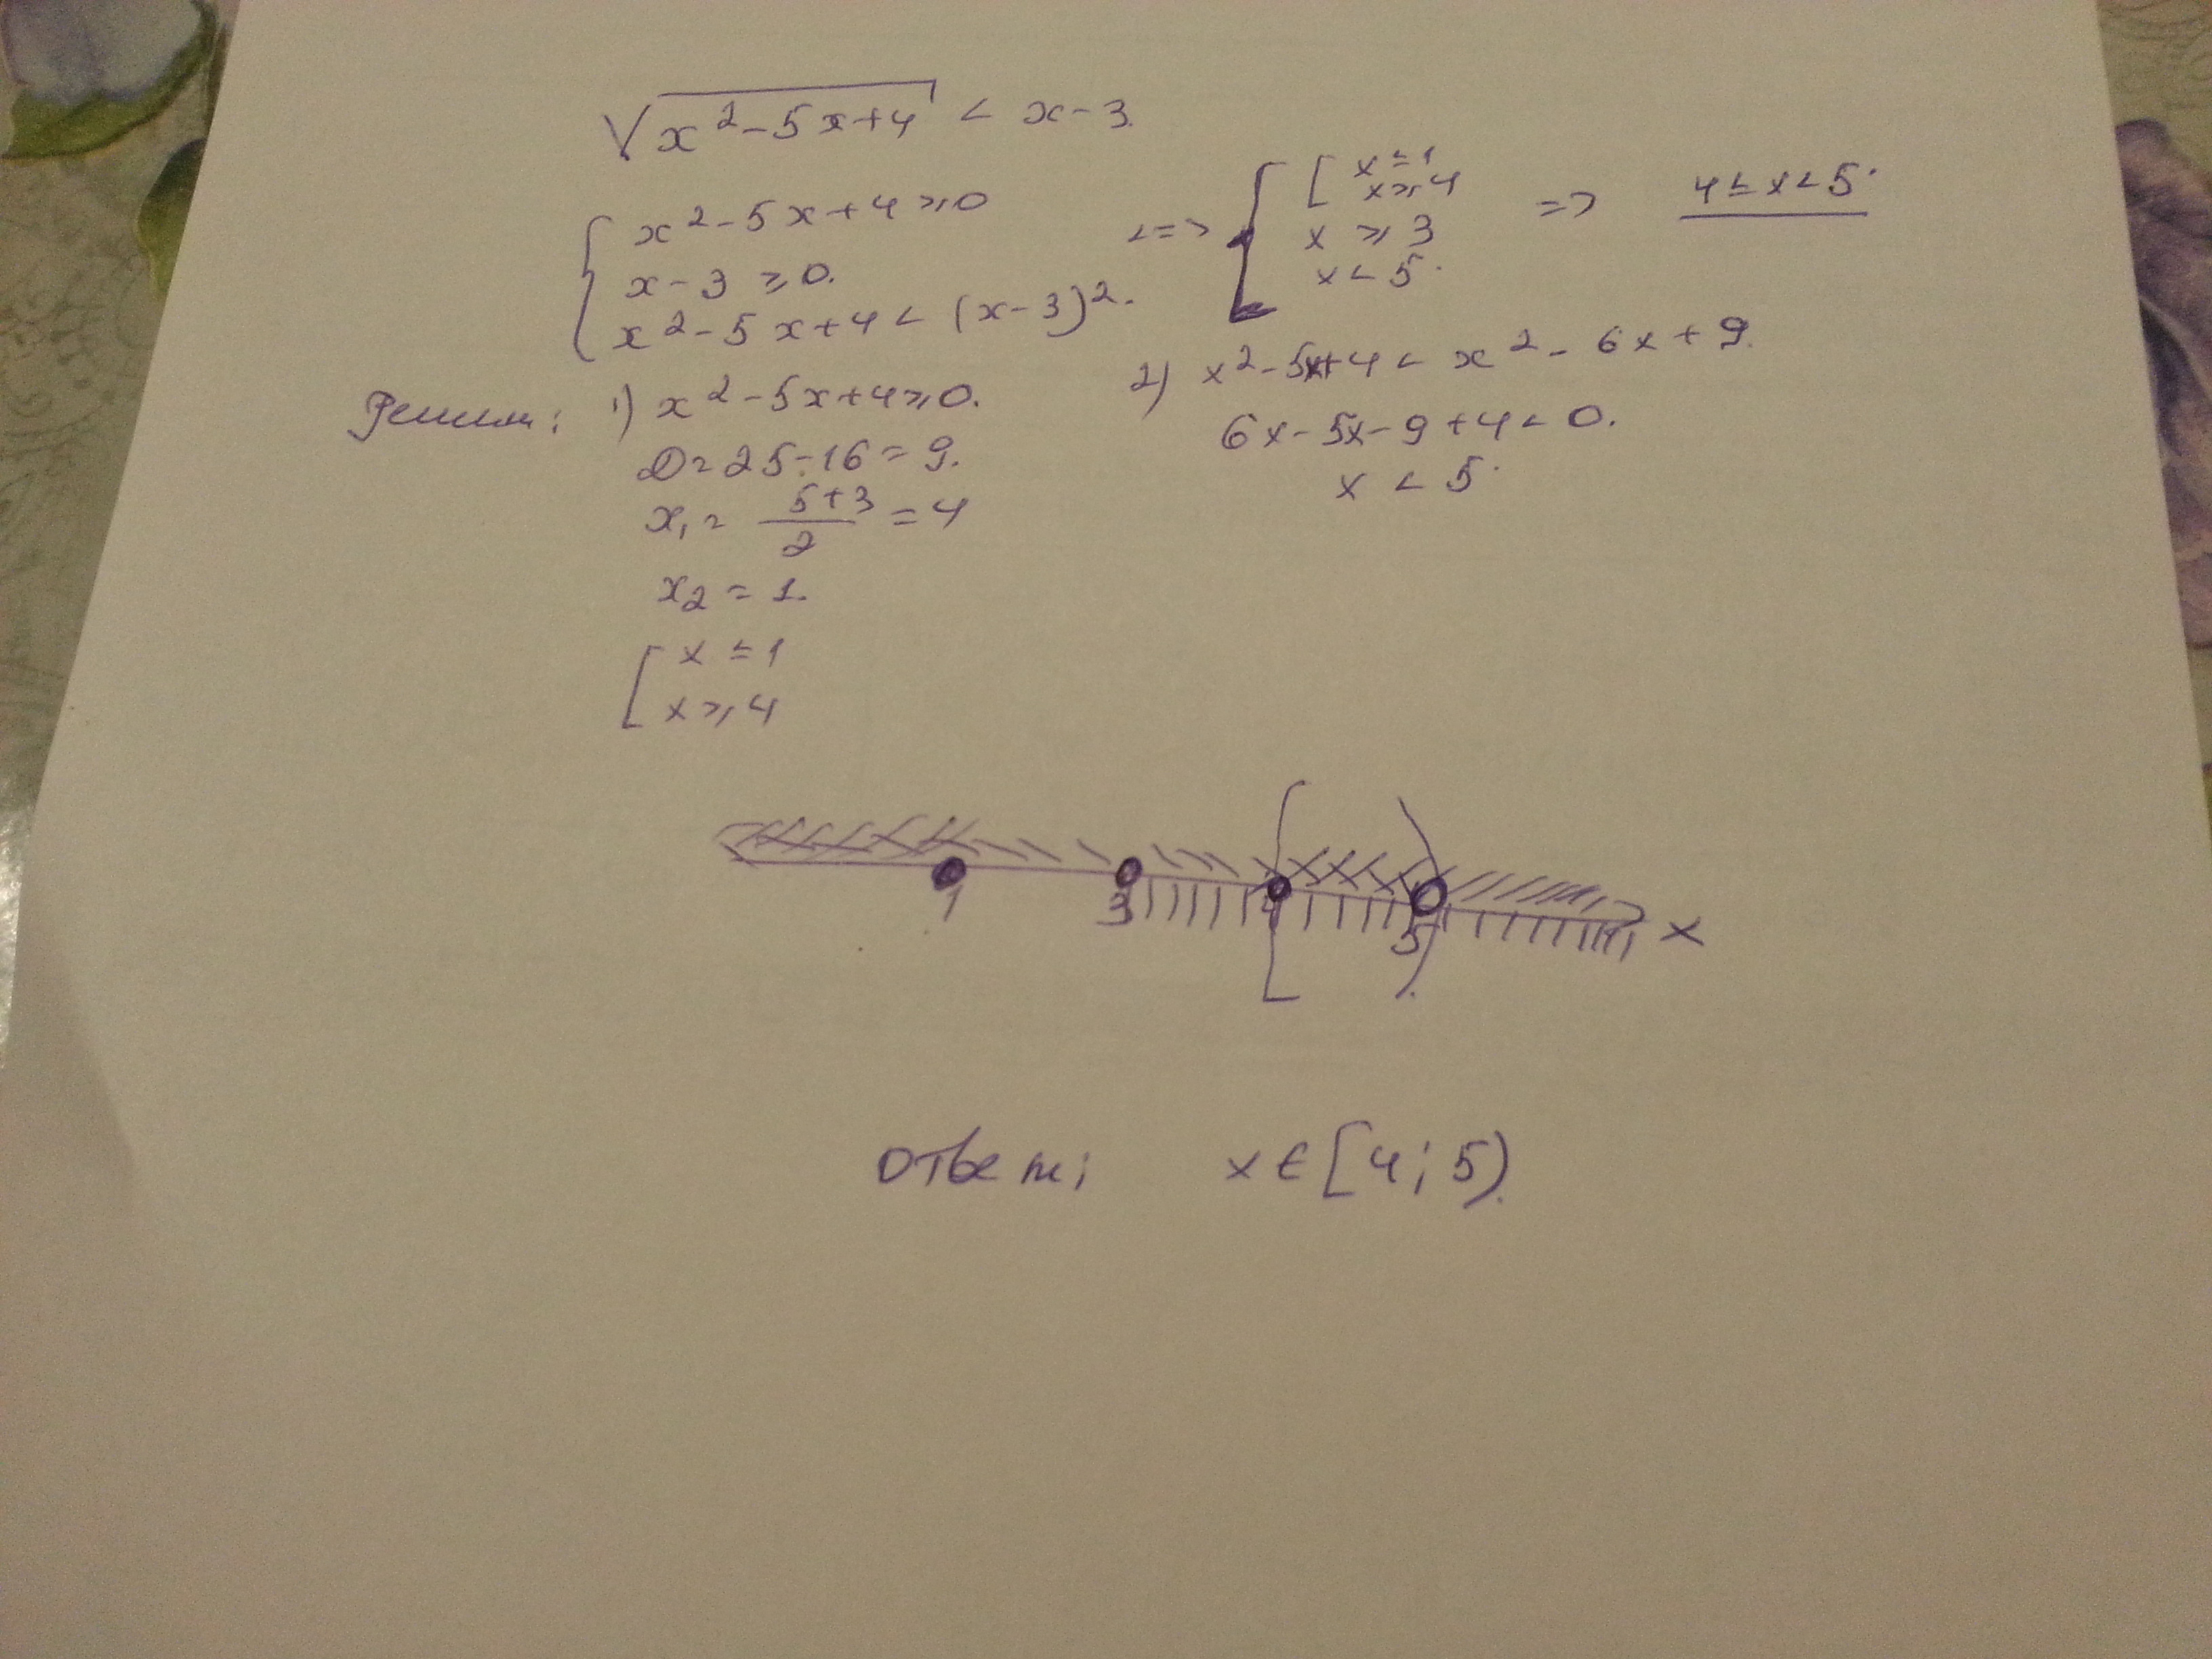 √(x²-5x+4) < x-3.
{ x²-5x+4 ⩾ 0
x-3 ≥ 0.
x²-5x+4 < (x-3)².
<=> { [ x ≤ 1
x ⩾ 4
x ⩾ 3
x < 5.
=> 4 ≤ x < 5.
Решим: 1) x²-5x+4 ⩾ 0.
D = 25-16 = 9.
x₁ = (5+3)/2 = 4
x₂ = 1.
[ x ≤ 1
x ⩾ 4
2) x²-5x+4 < x²-6x+9.
6x-5x-9+4 < 0.
x < 5.
1 3 4 5 x
Ответ: x ∈ [4; 5).